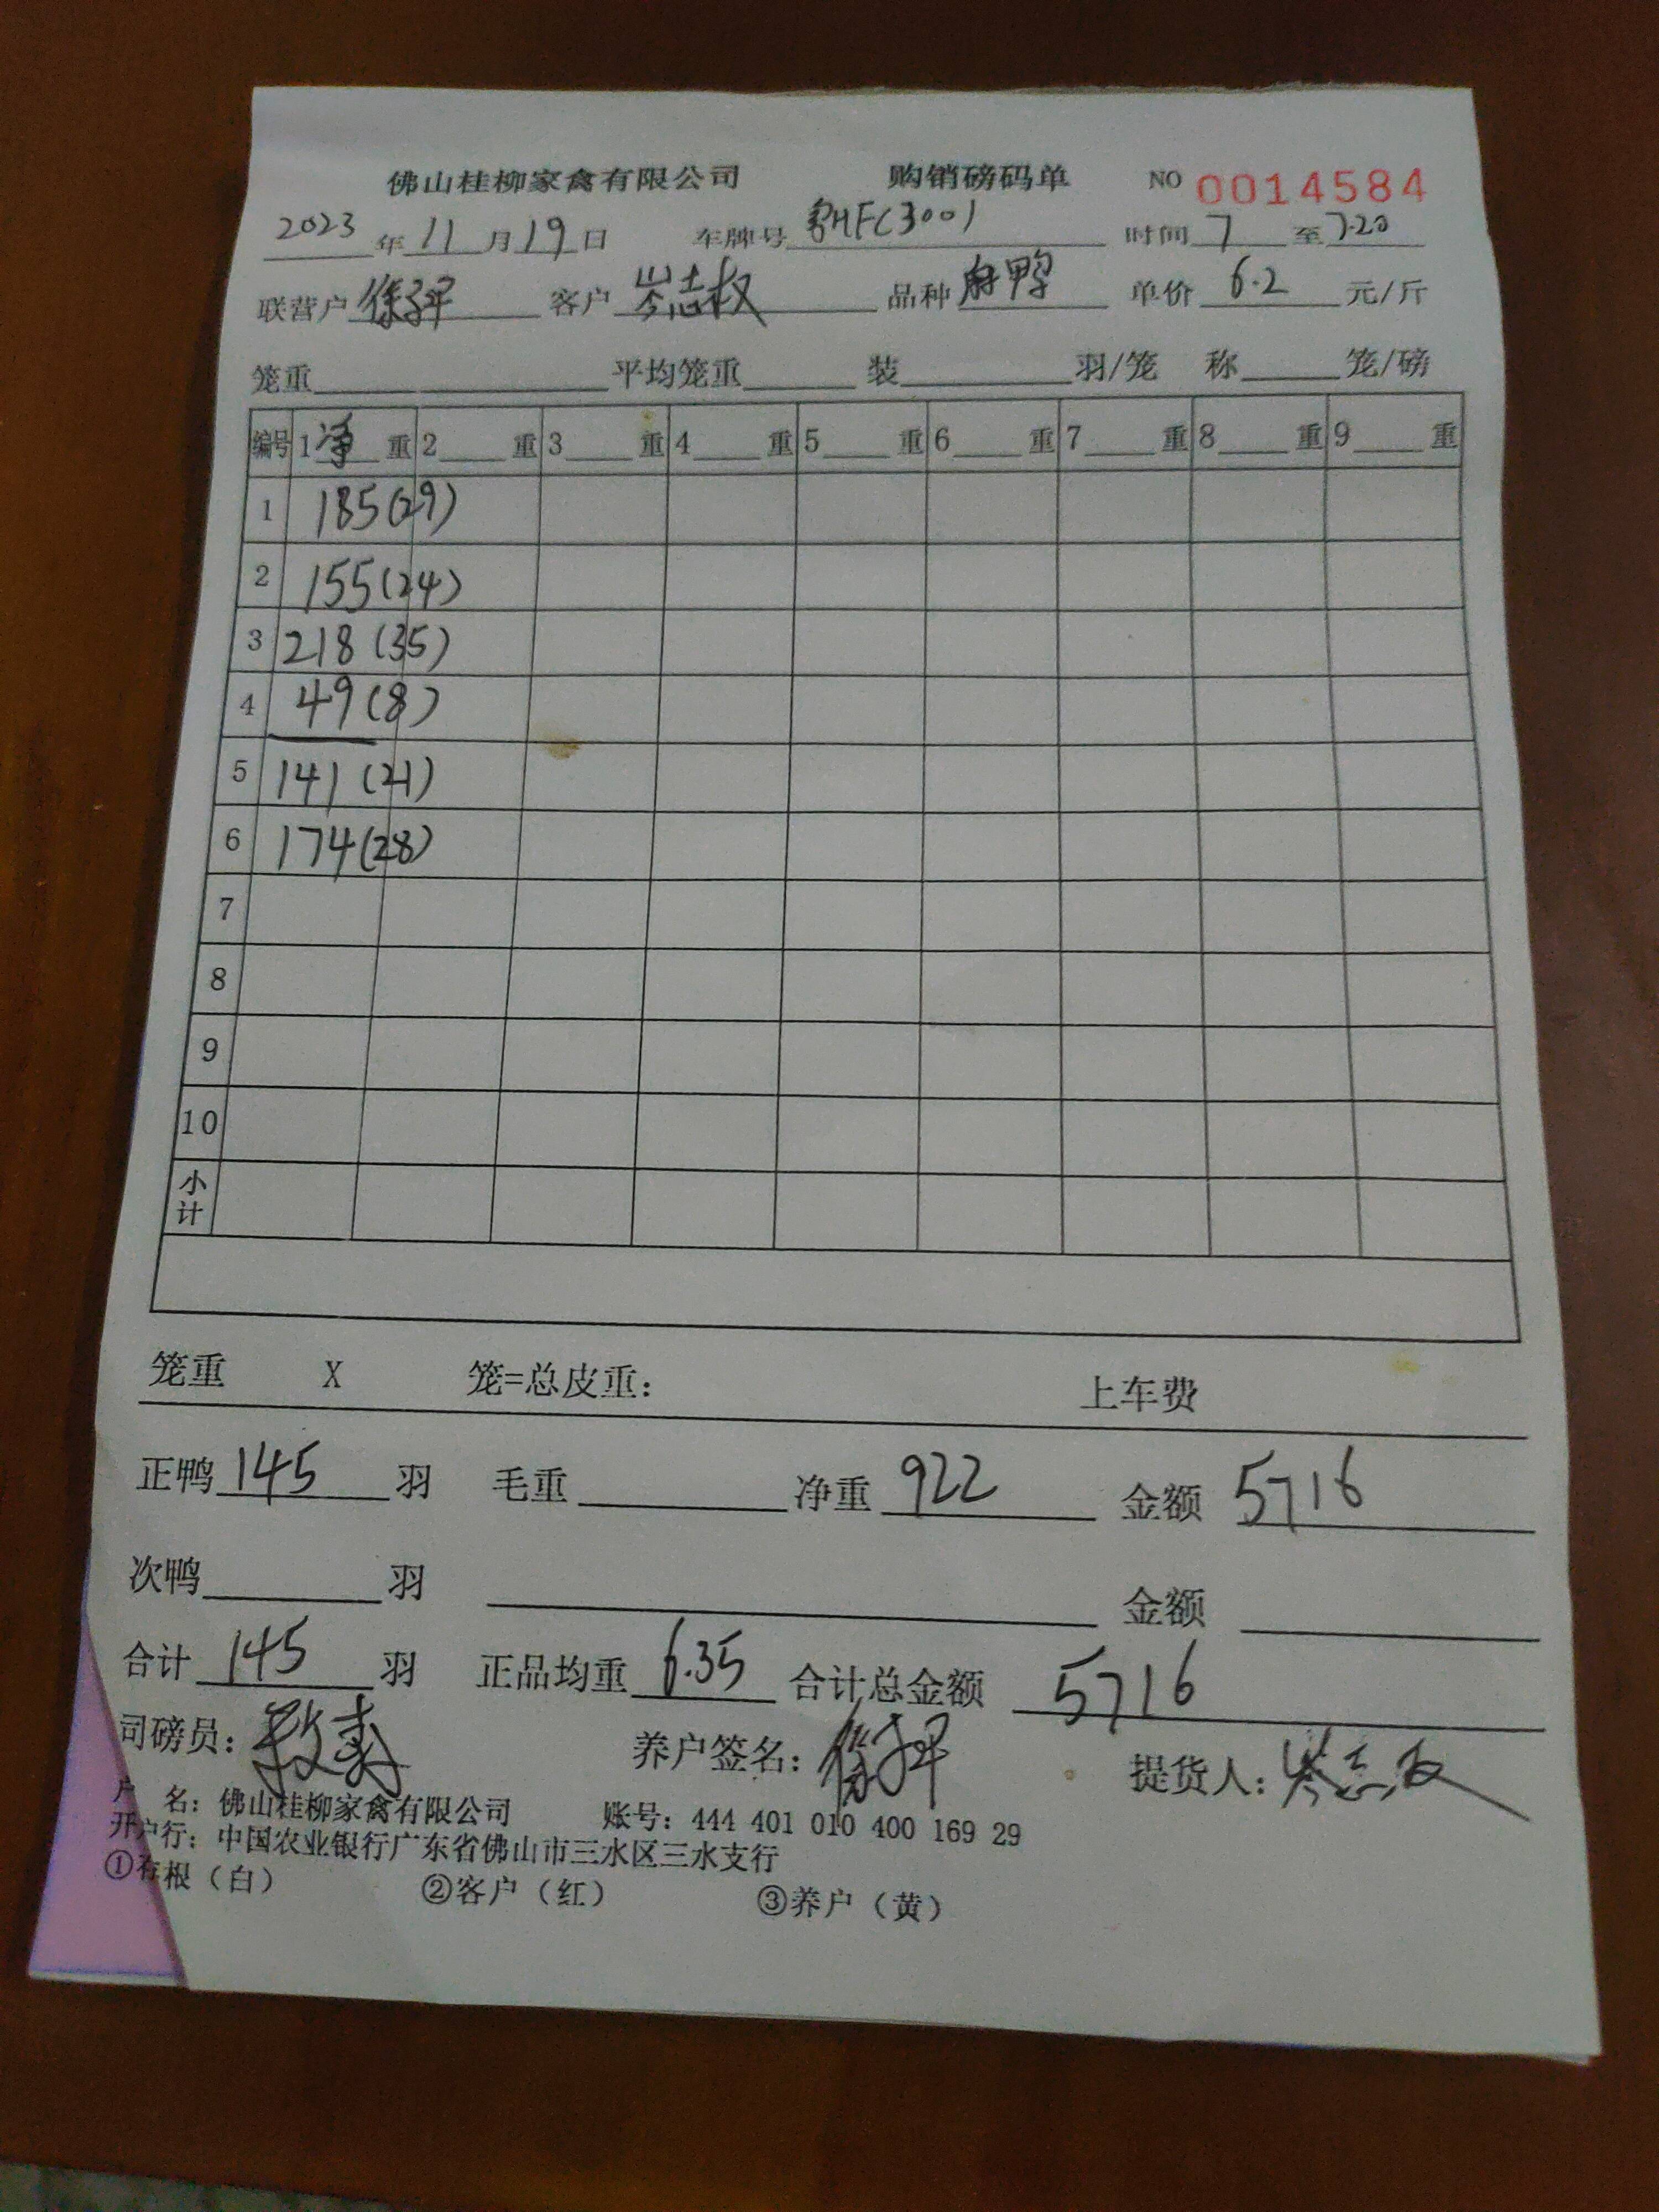 佛山桂柳家禽有限公司 购销磅码单 NO 0014584
2023年11月19日 车牌号 粤HFC3001 时间 7 至 7.20
联营户 客户 岑志权 品种 麻鸭 单价 6.2 元/斤
笼重 平均笼重 装 羽/笼 称 笼/磅
编号 1 净 重 2 重 3 重 4 重 5 重 6 重 7 重 8 重 9 重
1 185(29)
2 155(24)
3 218(35)
4 49(8)
5 141(21)
6 174(28)
7
8
9
10
小计
笼重 X 笼=总皮重: 上车费
正鸭 145 羽 毛重 净重 922 金额 5716
次鸭 羽 金额
合计 145 羽 正品均重 6.35 合计总金额 5716
司磅员: 养户签名: 提货人: 岑志权
户 名: 佛山桂柳家禽有限公司 账号: 444 401 010 400 169 29
开户行: 中国农业银行广东省佛山市三水区三水支行
①存根(白) ②客户(红) ③养户(黄)